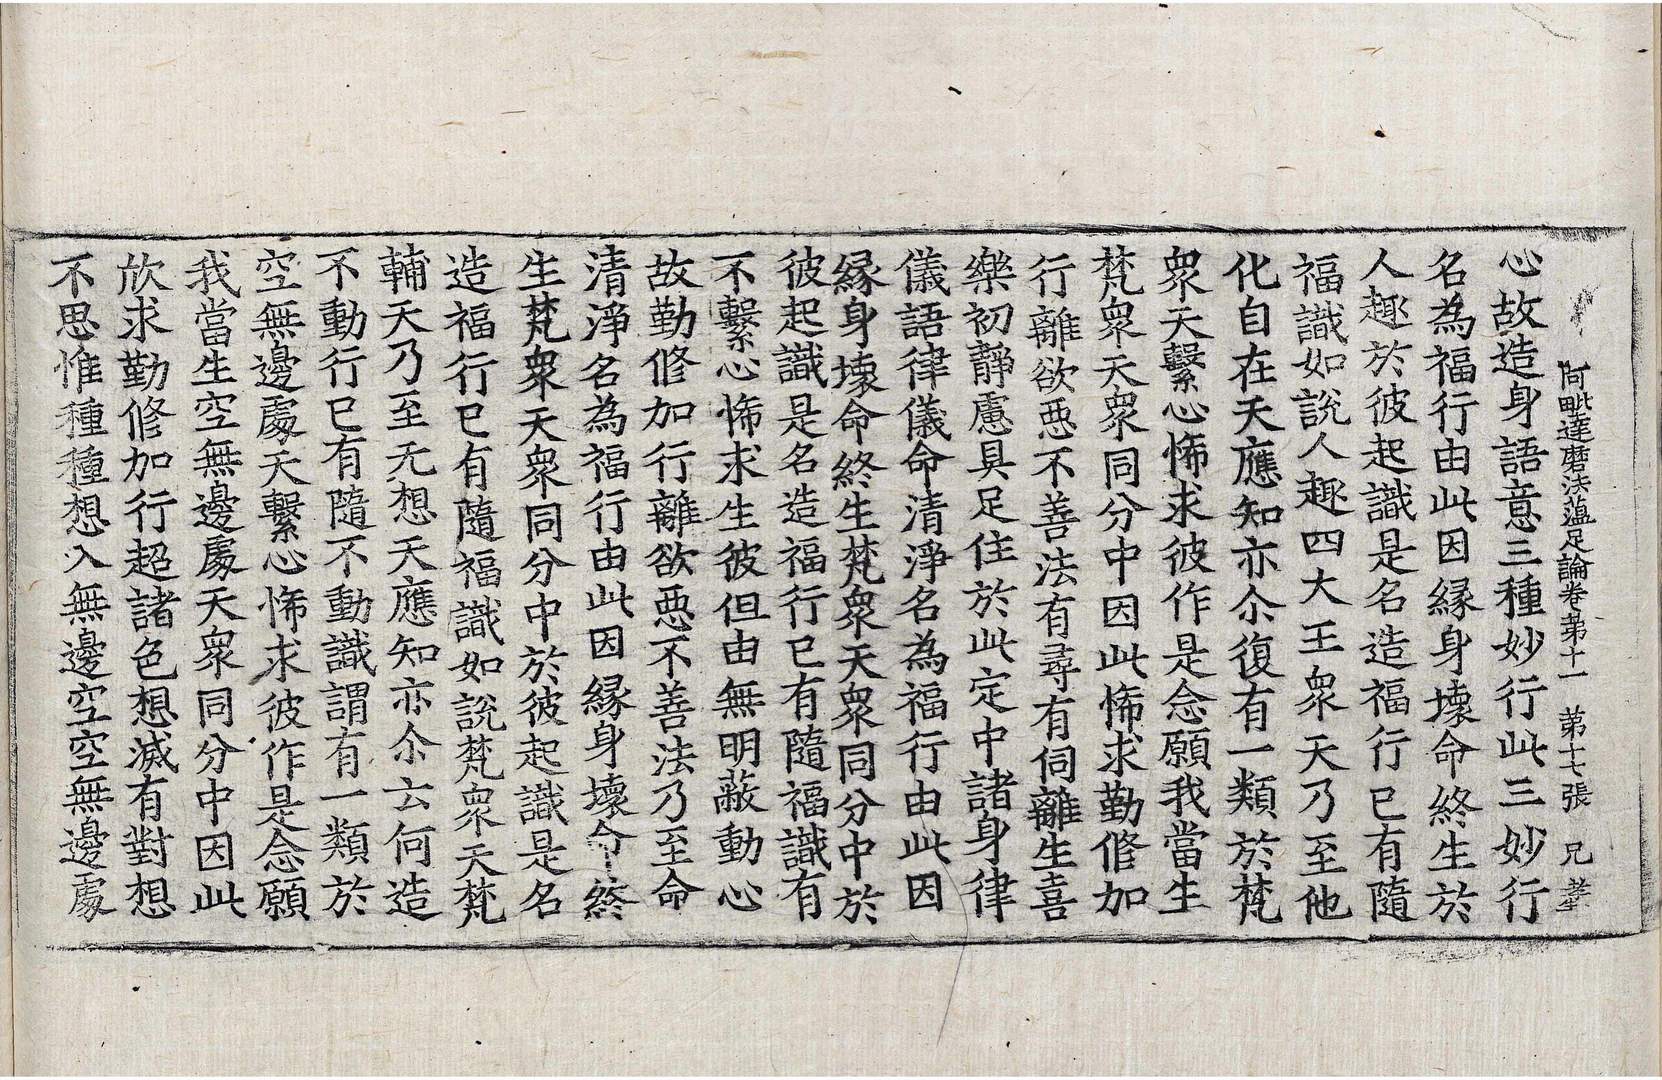 阿毗達磨法蕴足論卷苐十一 苐十七張 兄
心故造身語意三種妙行此三妙行
名為福行由此因縁身壞命終生於
人趣於彼起識是名造福行已有隨
福識如說人趣四大王衆天乃至他
化自在天應知亦尒復有一類於梵
衆天繫心悕求彼作是念願我當生
梵衆天衆同分中因此悕求勤修加
行離欲惡不善法有尋有伺離生喜
樂初靜慮具足住於此定中諸身律
儀語律儀命清淨名為福行由此因
縁身壞命終生梵衆天衆同分中於
彼起識是名造福行已有隨福識有
不繫心悕求生彼但由無明蔽動心
故勤修加行離欲惡不善法乃至命
清淨名為福行由此因縁身壞命終
生梵衆天衆同分中於彼起識是名
造福行已有隨福識如說梵衆天梵
輔天乃至无想天應知亦尒云何造
不動行已有隨不動識謂有一類於
空無邊處天繫心悕求彼作是念願
我當生空無邊處天衆同分中因此
欣求勤修加行超諸色想滅有對想
不思惟種種想入無邊空空無邊處